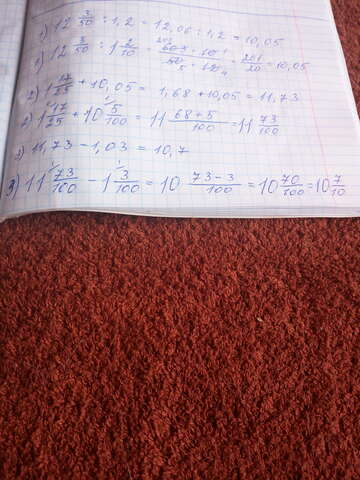 1) 12 3/50 : 1,2 = 12,06 : 1,2 = 10,05
1) 12 3/50 : 1 2/10 = 603 · 10 / 50 · 12 = 201/20 = 10,05
2) 1 17/25 + 10,05 = 1,68 + 10,05 = 11,73
2) 1 17/25 + 10 5/100 = 11 68+5/100 = 11 73/100
3) 11,73 - 1,03 = 10,7
3) 11 73/100 - 1 3/100 = 10 73-3/100 = 10 70/100 = 10 7/10